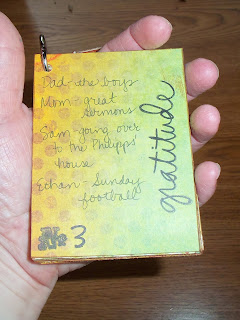 Dad-the boys
Mom-great
sermons
Sam-going over
to the Philipps'
house
Ethan-Sunday
football
gratitude
3